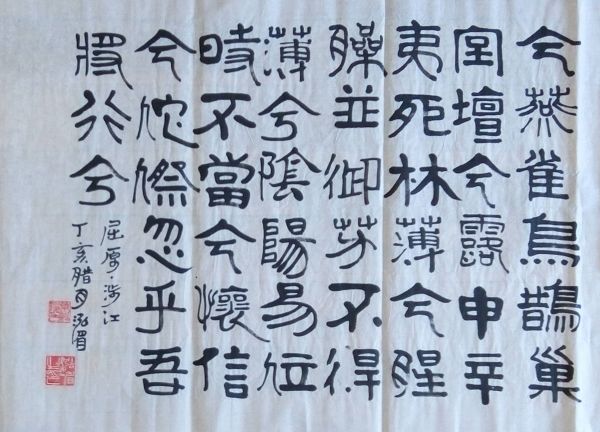 兮燕雀烏鵲巢
堂壇兮露申辛
夷死林薄兮腥
臊並御芳不得
薄兮陰陽易位
時不當兮懷信
兮侘傺忽乎吾
將行兮
屈原·涉江
丁亥腊月